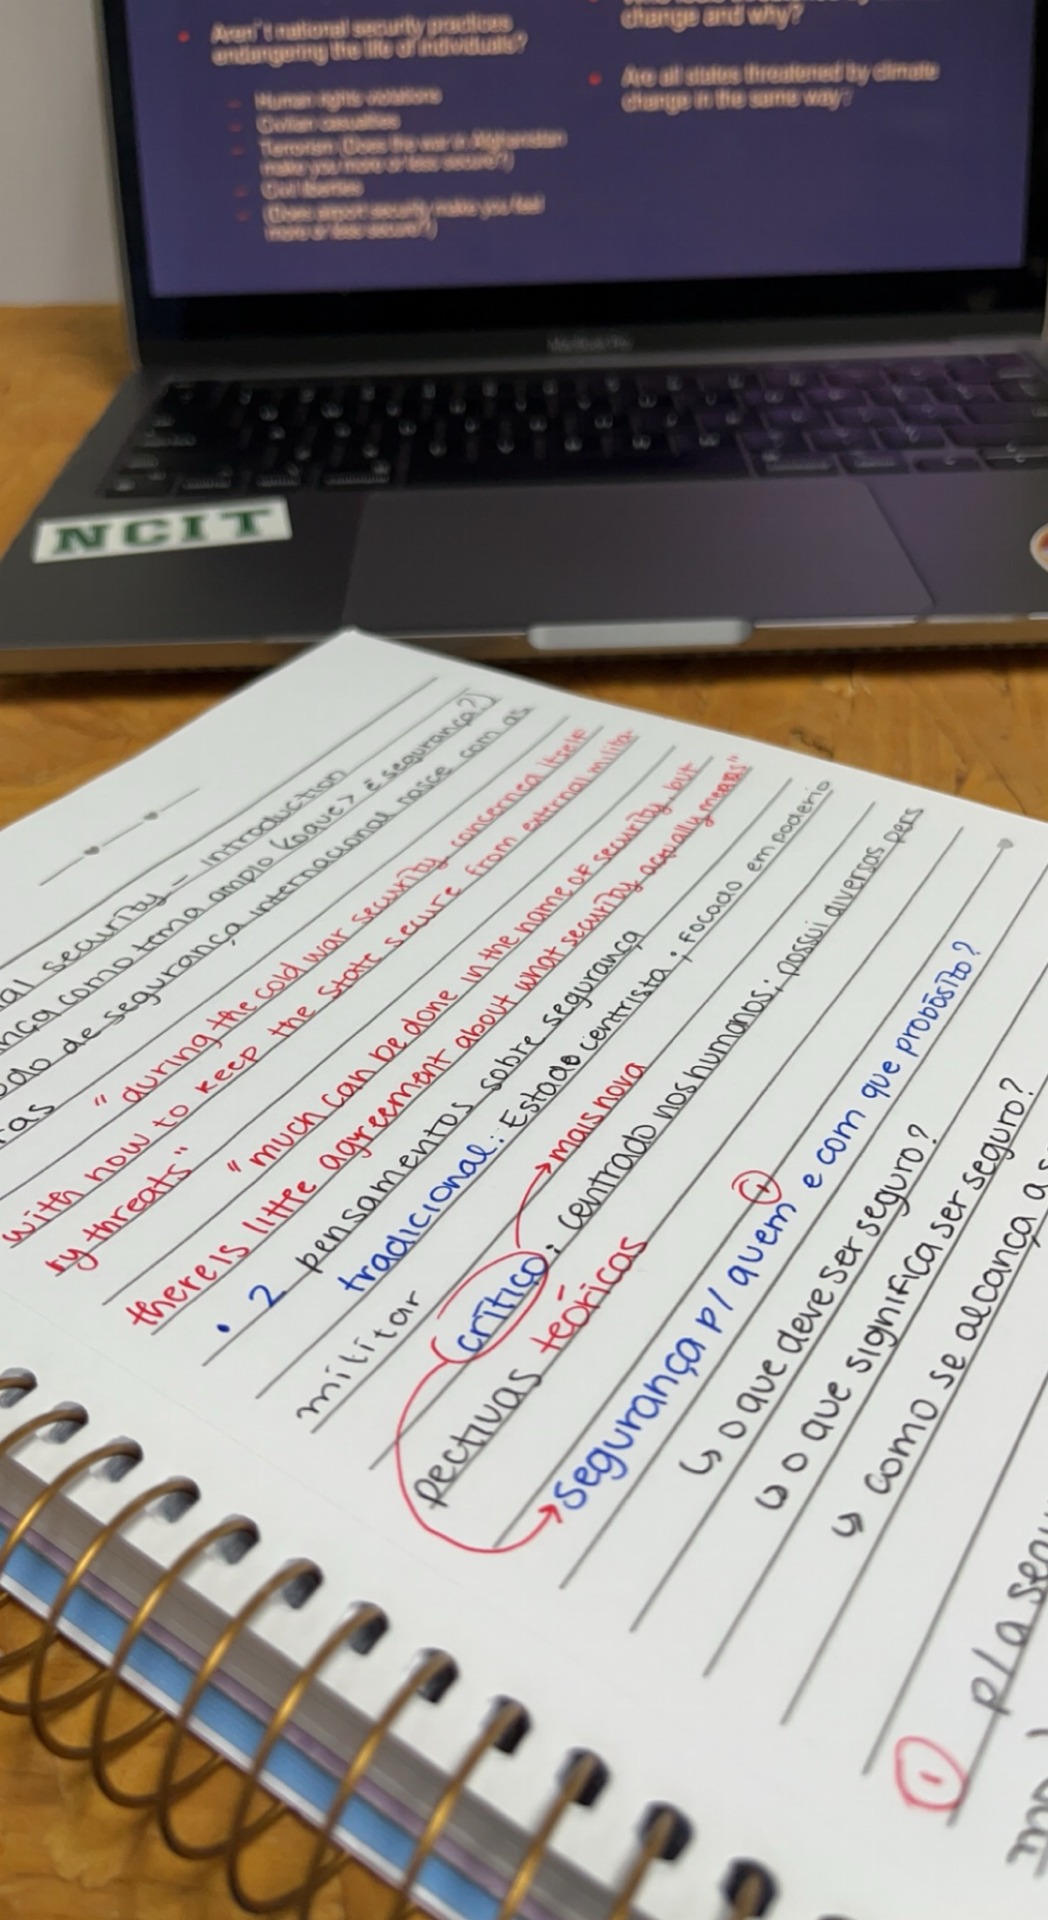 change and why?
Aren't national security practices
endangering the life of individuals?
Human rights violations
Civilian casualties
Terrorism (Does the war in Afghanistan
make you more or less secure?)
Civil liberties
(Does airport security make you feel
more or less secure?)
Are all states threatened by climate
change in the same way?
MacBook Pro
NCIT
security - introduction
como tema amplo (o que > é segurança?)
de segurança internacional nasce com as
"during the cold war security concerned itself
with how to keep the State secure from external milita-
ry threats"
"much can be done in the name of security, but
there is little agreement about what security actually means"
• 2 pensamentos sobre segurança
tradicional: Estado centrista; focado em poderio
militar
→ mais nova
crítico: centrado nos humanos; possui diversas pers
pectivas teóricas
→ segurança p/ quem ① e com que propósito?
↳ o que deve ser seguro?
↳ o que significa ser seguro?
↳ como se alcança a
① p/ a